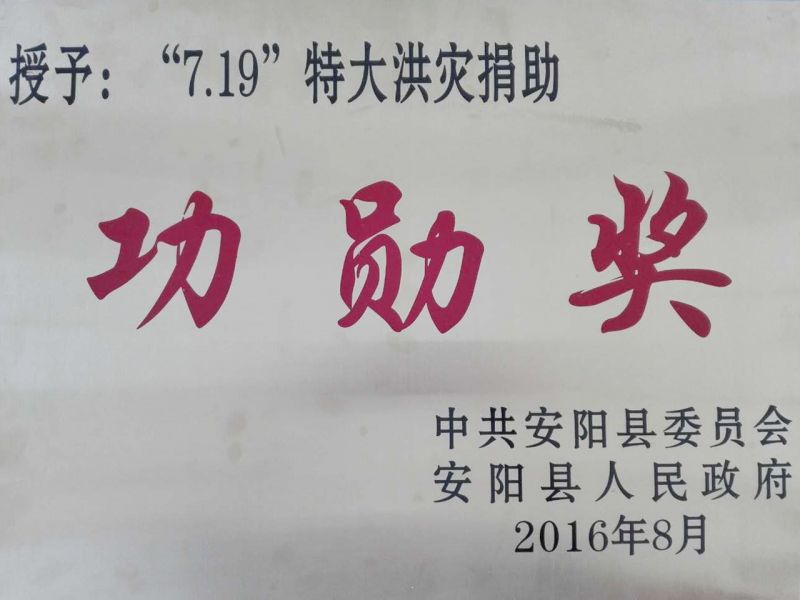 授予：“7.19”特大洪灾捐助
功勋奖
中共安阳县委员会
安阳县人民政府
2016年8月